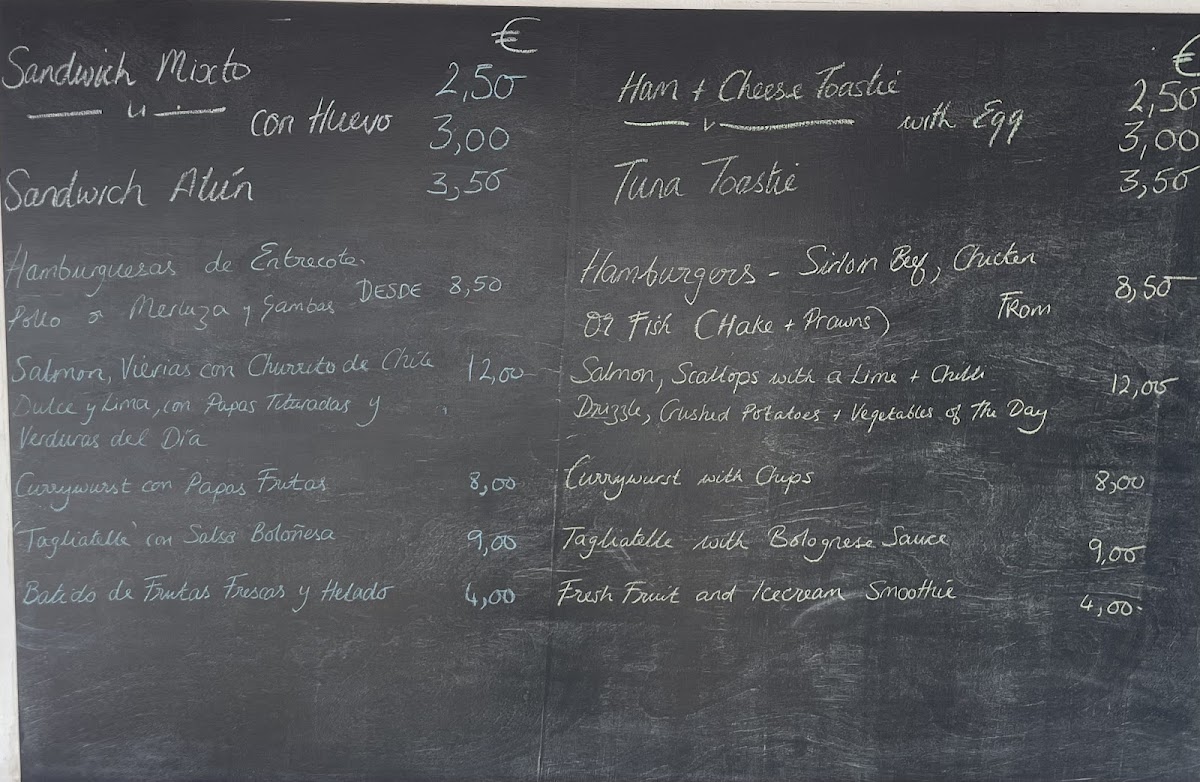 €
Sandwich Mixto 2,50
" con Huevo 3,00
Sandwich Atún 3,50
Hamburguesas de Entrecote,
Pollo o Merluza y Gambas DESDE 8,50
Salmon, Vierias con Churrito de Chile 12,00
Dulce y Lima, con Papas Trituradas y
Verduras del Día
Currywurst con Papas Fritas 8,00
'Tagliatelle' con Salsa Boloñesa 9,00
Batido de Frutas Frescas y Helado 4,00
€
Ham + Cheese Toastie 2,50
" with Egg 3,00
Tuna Toastie 3,50
Hamburgers - Sirloin Beef, Chicken
Or Fish (Hake + Prawns) From 8,50
Salmon, Scallops with a Lime + Chilli 12,00
Drizzle, Crushed Potatoes + Vegetables of The Day
Currywurst with Chips 8,00
Tagliatelle with Bolognese Sauce 9,00
Fresh Fruit and Icecream Smoothie 4,00